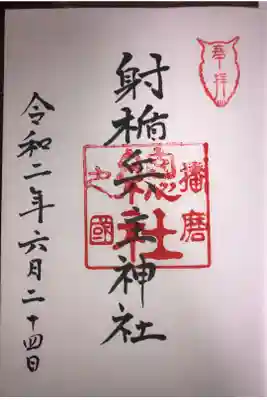 奉拝
射楯兵主神社
播磨
総社
之國
令和二年六月二十四日